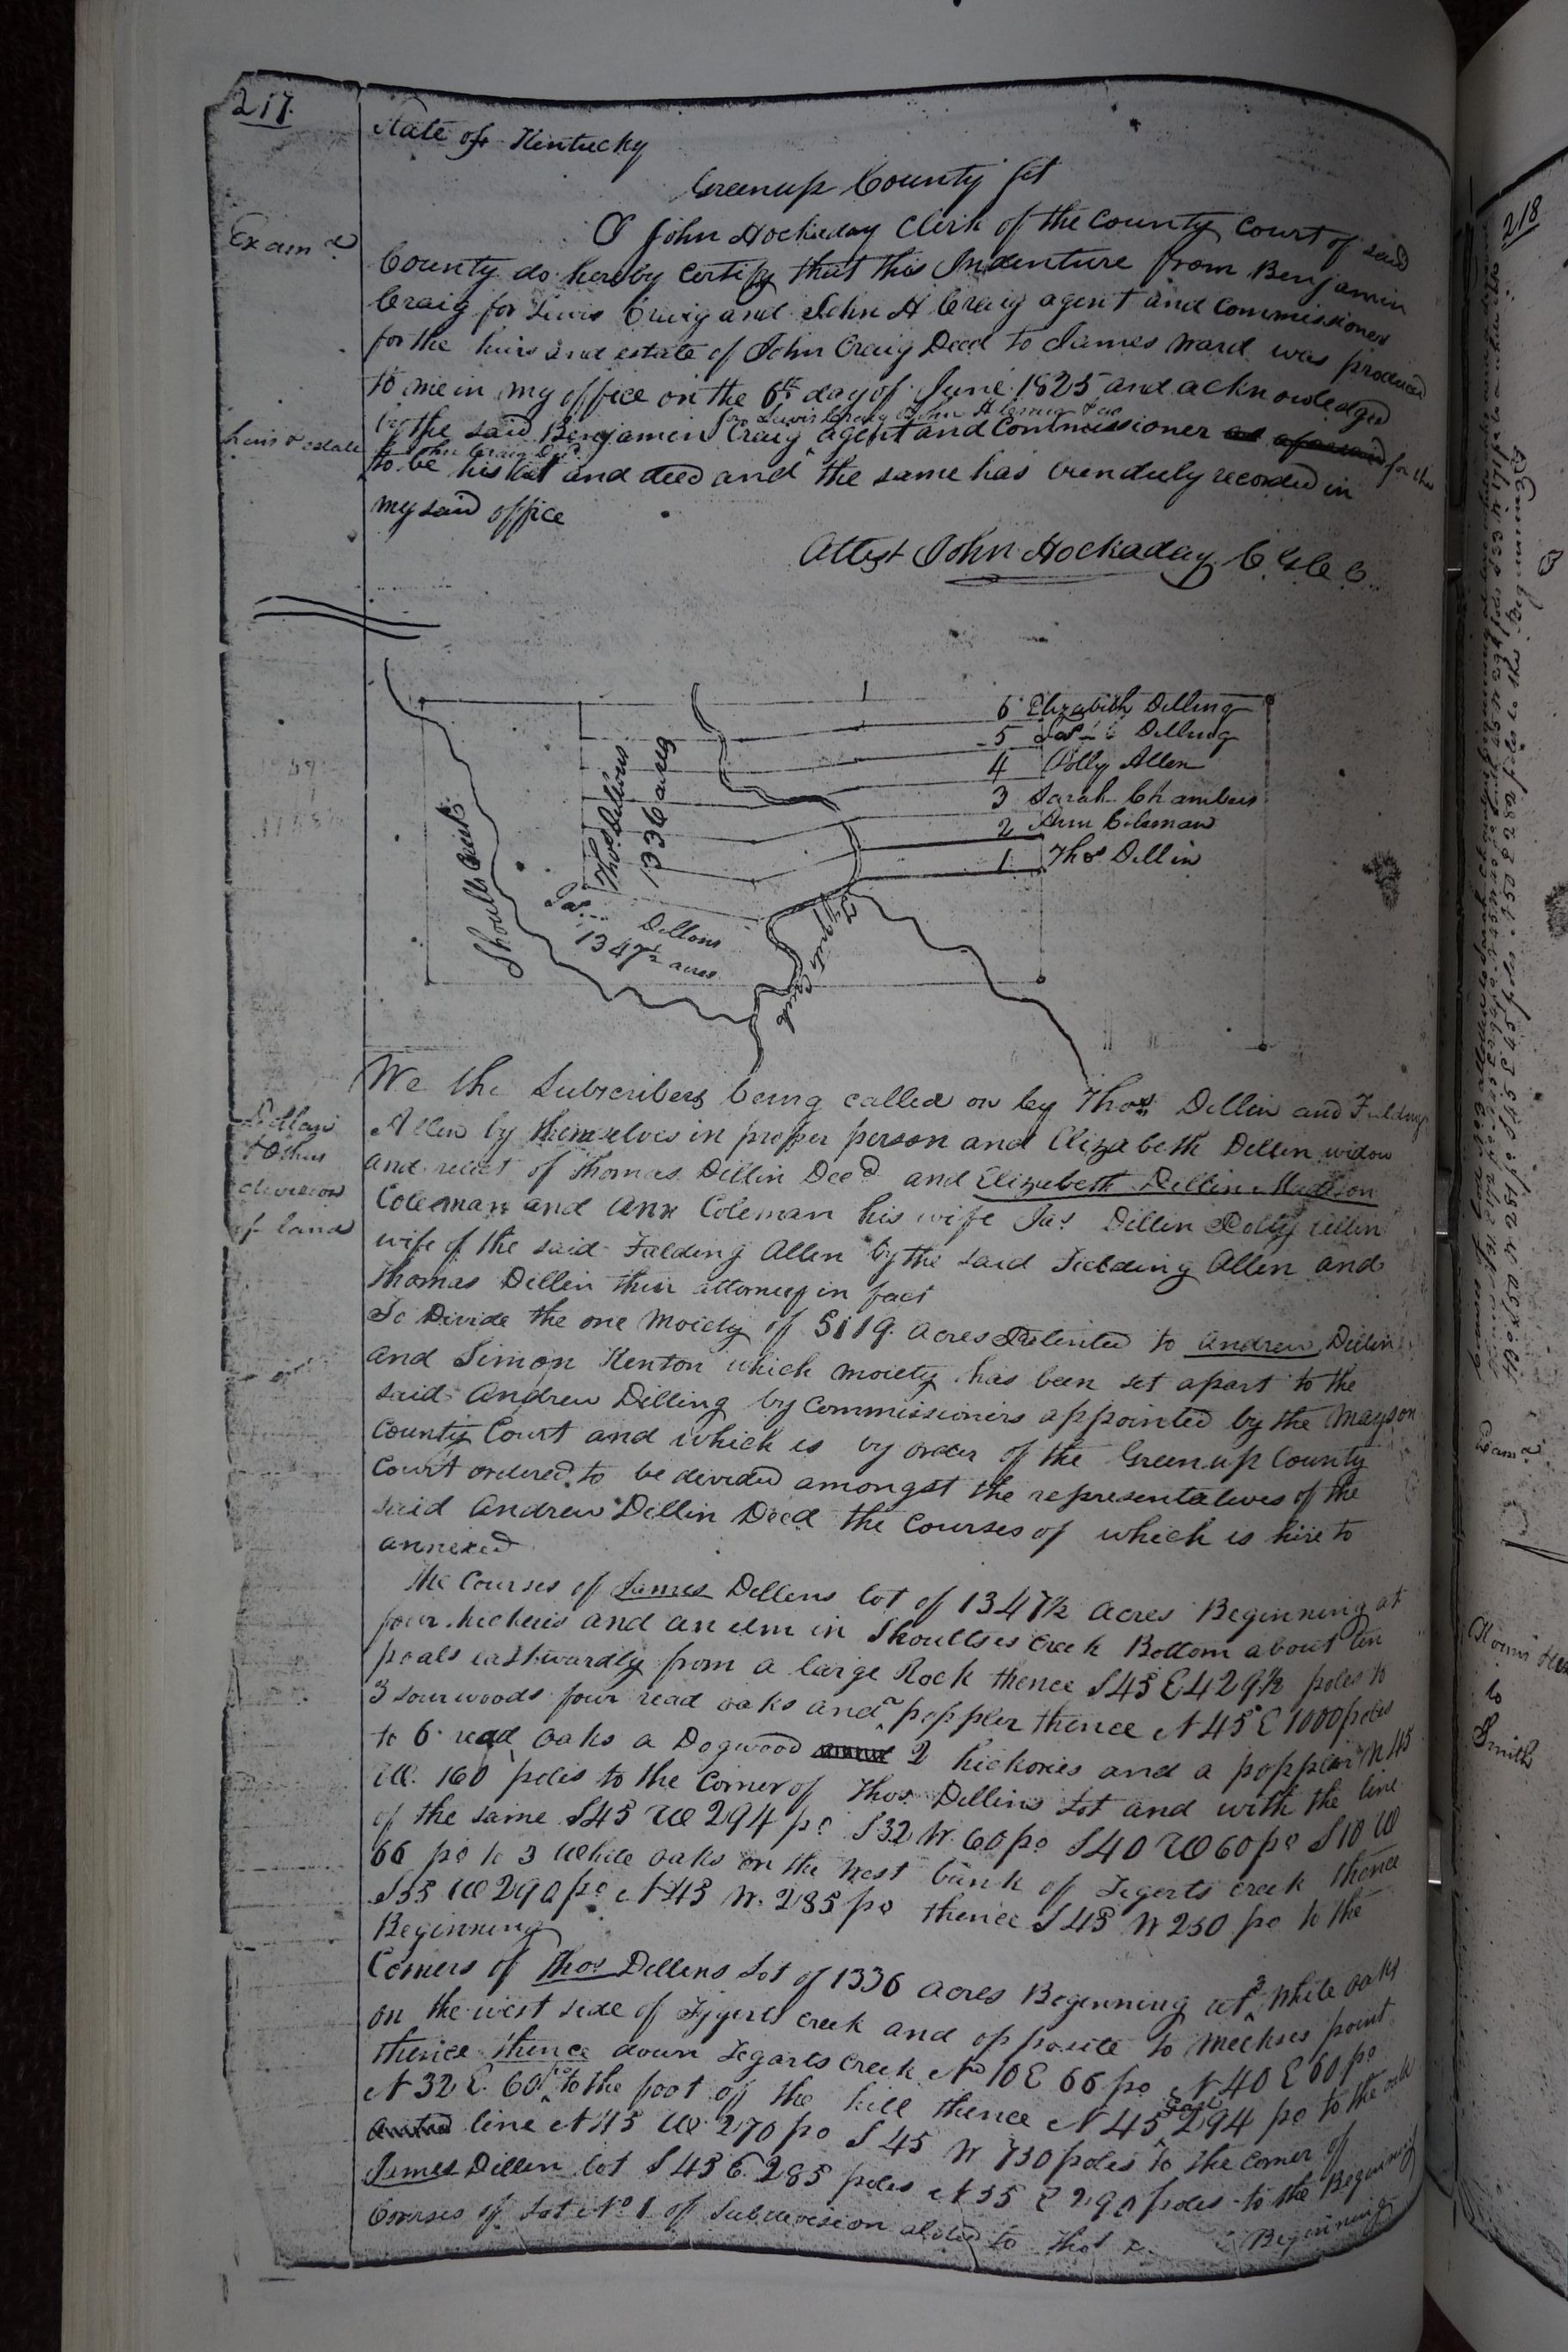 217.
State of Kentucky
Greenup County Sct
Examd
I John Hockaday Clerk of the County Court of said
County do hereby Certify that this Indenture from Benjamin
Craig for Lewis Craig and John H Craig agent and Commissioner
for the heirs and estate of John Craig Decd to James Ward was produced
to me in my office on the 6th day of June 1825 and acknowledged
for Lewis Craig John H Craig
by the said Benjamin Craig agent and Commissioner for the
heirs & estate
John Craig Decd
to be his act and deed and the same has been duly recorded in
my said office
Attest John Hockaday C.G.C.C.
6 Elizabeth Dilling
5 Jas Dilling
4 Polly Allen
3 Sarah Chambers
2 Ann Colemaw
1 Thos Dillin
Thos Dillons
1336 acres
Shoults Creek
Jas Dillons
1347½ acres
Tygerts Creek
Dillan
& Others
division
of land
We the Subscribers being called on by Thos Dillin and Fielding
Allen by themselves in proper person and Elizabeth Dillin widow
and relict of Thomas Dillin Decd and Elizebeth Dillin Madison
Coleman and Ann Coleman his wife Jas Dillin Polly Allen
wife of the said Falding Allen by the said Fielding Allen and
Thomas Dillin their attorney in fact
To Divide the one Moiety of 5119 acres Patented to Andrew Dillin
and Simon Kenton which moiety has been set apart to the
said Andrew Dilling by Commissioners appointed by the Mayson
County Court and which is by order of the Greenup County
Court ordered to be devided amongst the representatives of the
said Andrew Dillin Decd the Courses of which is here to
annexed
The Courses of James Dillens lot of 1347½ acres Beginning at
four hickeris and an elm in Shoultses Creek Bottom about ten
poals eastwardly from a large Rock thence S 45 E 429½ poles to
3 sourwoods four read oaks and a poppler thence N 45 E 1000 poles
to 6 read oaks a Dogwood 2 hickories and a popplar N 45
W. 160 poles to the Corner of Thos Dillins Lot and with the line
of the same S 45 W 294 po S 32 W. 60 po S 40 W 60 po S 10 W
66 po to 3 White oaks on the West bank of Tegerts Creek thence
S 55 W 290 po N 45 W. 285 po thence S 45 W 250 po to the
Beginning
Corners of Thos Dillens Lot of 1336 acres Beginning at 3 White oaks
on the west side of Tygerts Creek and opposite to Meekses point
thence thence down Tegarts Creek No 10 E 66 po N 40 E 60 po
N 32 E. 60 po to the foot of the hill thence N 45 East 294 po to the
line N 45 W 270 po S 45 W 730 poles to the corner of
James Dillen lot S 45 E. 285 poles N 55 E 290 poles to the Beginning
Courses of Lot No 1 of Subdevision to Thos Beginning
218
Examd
to
Smith